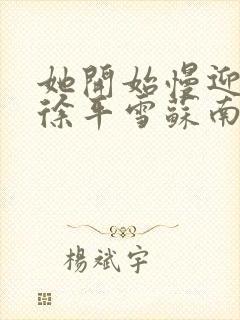 她開始慢迎
徐平雪蘇南
楊斌宇